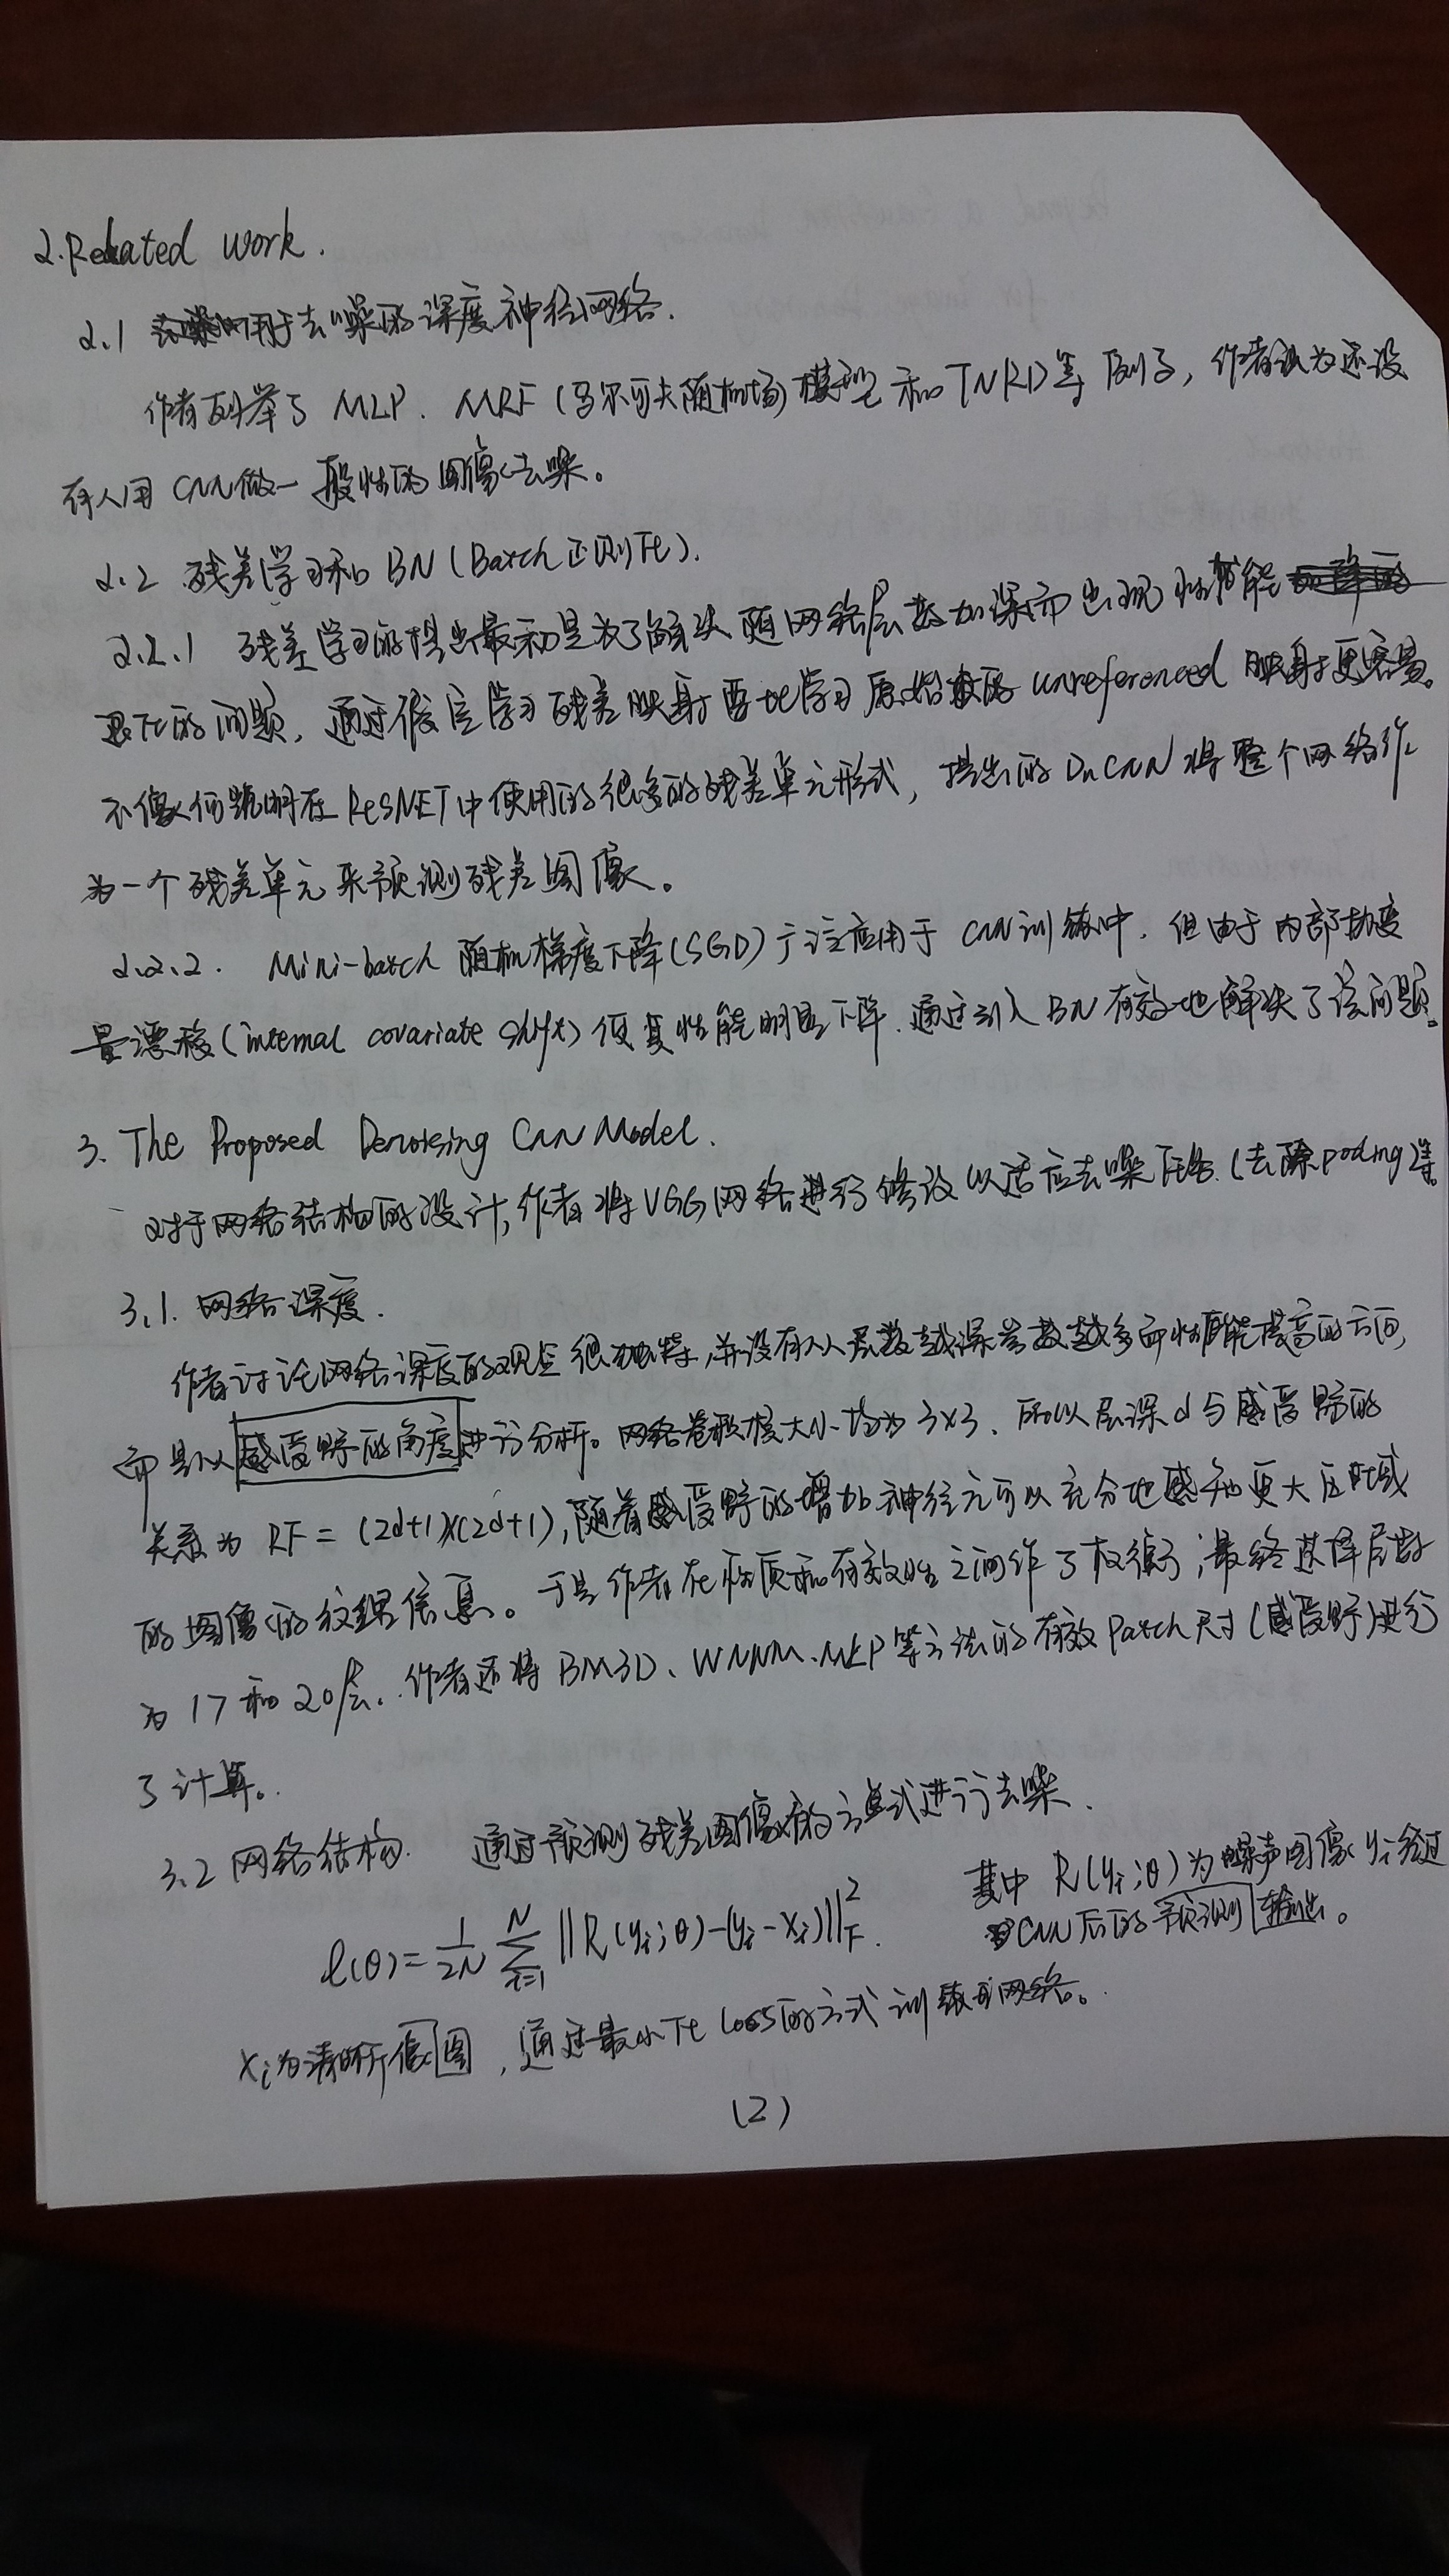 2. Related work.
2.1 用于去噪的深度神经网络.
作者列举了 MLP. MRF (马尔可夫随机场) 模型 和 TNRD 等 例子, 作者认为还没
有人用 CNN 做一般性的图像去噪。
2.2 残差学习和 BN (Batch 正则化).
2.2.1 残差学习的提出最初是为了解决 随网络层数加深而出现性能
退化的问题, 通过假定学习残差映射要比学习原始的 unreferenced 映射更容易。
不像何凯明在 ResNET 中使用的很多的残差单元形式, 提出的 DnCNN 将整个网络作
为一个残差单元来预测残差图像。
2.2.2. Mini-batch 随机梯度下降 (SGD) 广泛应用于 CNN 训练中. 但由于内部协变
量漂移 (internal covariate shift) 使其性能明显下降. 通过引入 BN 有效地解决了该问题。
3. The Proposed Denoising CNN Model.
对于网络结构的设计, 作者将 VGG 网络进行修改以适应去噪任务. (去除 pooling) 等。
3.1. 网络深度.
作者讨论网络深度的观点很独特, 并没有从层数越深参数越多而性能提高的方面,
而是从感受野的角度进行分析。网络卷积核大小均为 3×3. 所以层深 d 与感受野的
关系为 RF = (2d+1)×(2d+1), 随着感受野的增加神经元可以充分地感知更大区域
的图像的纹理信息。于是作者在性质和有效性之间作了权衡; 最终选择层数
为 17 和 20 层. 作者还将 BM3D、WNNM、MLP 等方法的有效 Patch 尺寸 (感受野) 进行
了计算。
3.2 网络结构. 通过预测残差图像的方式进行去噪.
ℓ(θ) = 1/2N ∑_{i=1}^{N} ||R(y_i; θ) - (y_i - x_i)||_F^2. 其中 R(y_i; θ) 为噪声图像 y_i 经过
CNN 后的预测输出。
x_i 为清晰像图, 通过最小化 loss 的方式训练网络。
(2)